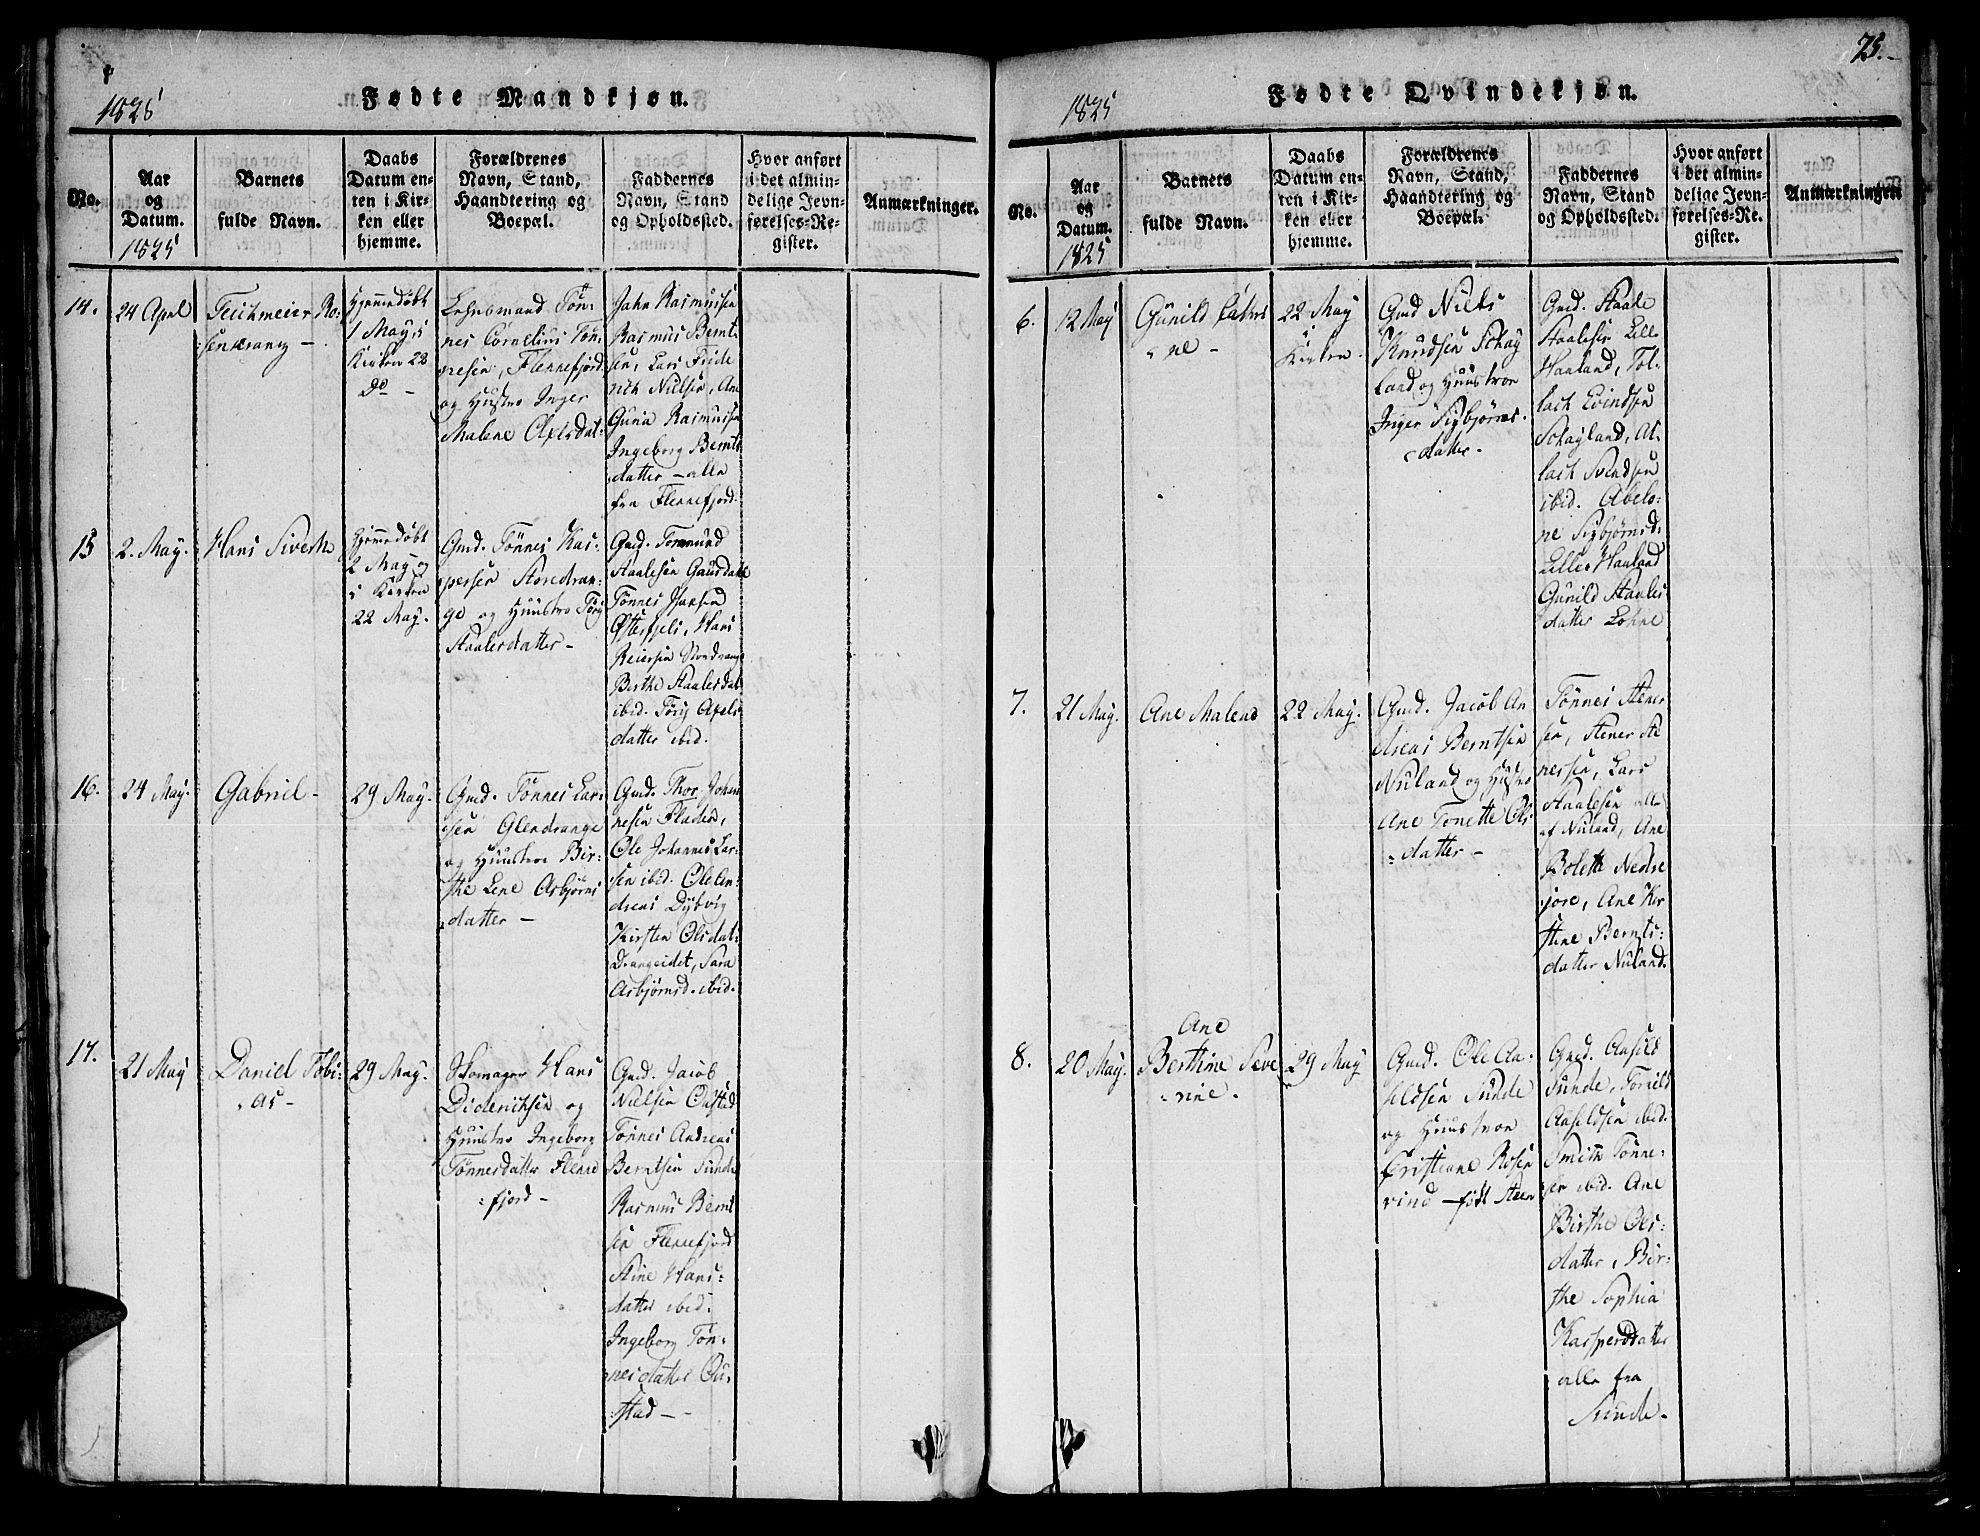 1825
Fødte Mandkjøn.
No.
Aar
og
Datum.
1825
Barnets
fulde Navn.
Daabs
Datum en-
ten i Kir-
ken eller
hjemme.
Forældrenes
Navn, Stand,
Haandtering og
Boepæl.
Faddernes
Navn, Stand
og Opholdssted.
Hvor anført
i det almin-
delige Jevn-
førelses-Re-
gister.
Anmærkninger.
14.
24 April
Teichmeier Ro-
senkrantz –
Hjemmedøbt
1 May, i
Kirken 22
Do –
Lehnsmand Tøn-
nes Cornelius Tøn-
nesen, Flennefjord
og Hustro Inger
Malene Axelsdat-
Jahn Rasmussen
Rasmus Bernt-
sen, Lars Fride
rich Nielsen, Ane
Guria Rasmusen
Ingeborg Bernts
datter – alle
fra Flennefjord.
15
2. May.
Hans Sivert
Hjemmedøbt
2 May og
i Kirken
22 May.
Gmd. Tönnes Kas-
persen Storedran-
ge og Huustro Törg
Staalesdatter –
Gmd. Tormund
Staalesen Gausdahl
Tönnes Jansen
Østerfjeld, Hans
Reiersen Nordrange
Birthe Staalesdat
ibid. Törg Axels
datter ibid.
16.
24 May.
Gabriel –
29 May.
Gmd. Tönnes Lar-
sen Glendrange
og Huustroe Bir-
the Lene Asbjörns
datter –
Gmd. Thor Johan
nesen Fladen,
Ole Johannes Lar-
sen ibid. Ole An-
dreas Dybvig
Kirsten Olsdat-
Drangeidet, Sara
Asbjørnsd. ibid.
17.
21 May
Daniel Tobi-
as –
29 May.
Skomager Hans
Dideriksen og
Huustro Ingeborg
Tönnesdatter Flenne
fjord –
Gmd. Jacob
Nielsen Oustad
Tönnes Andreas
Berntsen Sunde
Rasmus Bernt
sen Flennefjord
Stine Hans-
datter ibid.
Ingeborg Tön-
nesdatter Ou-
stad –
75.
1825
Fødte Qvindekjøn.
No.
Aar
og
Datum.
1825
Barnets
fulde Navn.
Daabs
Datum en-
ten i Kir-
ken eller
hjemme.
Forældrenes
Navn, Stand,
Haandtering og
Boepæl.
Faddernes
Navn, Stand
og Opholdssted.
Hvor anført
i det almin-
delige Jevn-
førelses-Re-
gister.
Anmærkninger
6.
12 May
Gunild
ne –
22 May
i
Kirken.
Gmd Niels
Knudsen Schay
land og Huustroe
Inger Sigbjörns-
datter.
Gmd. Staale
Staalesen Lille
Haaland, Tol-
lach Evindsen
Schayland, At-
lach Svendsen
ibid. Abelo-
ne Sigbjörnsd.
Lille Haaland
Gunild Staales
datter Lohne
7.
21 May.
Ane Malene
22 May.
Gmd. Jacob An
dreas Berntsen
Nuland og Hustro
Ane Tonette Ols
datter –
Tönnes Stener
sen, Stener Stenersen, Lars
Staalesen alle
af Nuland, Ane
Bolette Nedre
jore, Ane Kir
stine Bernts-
datter Nuland.
8.
20 May.
Ane
Berthine Seve
rine.
29 May
Gmd. Ole Aa-
sildsen Sunde
og Huustroe
Cristiane Rosen
vind – født Steen
Gmd. Aasild
Sunde, Torild
Aasildsen ibid.
Smith Tönne-
sen ibid. Ane
Birthe Ols-
datter, Bir-
the Sophia
Kaspersdatter
alle fra
Sunde.